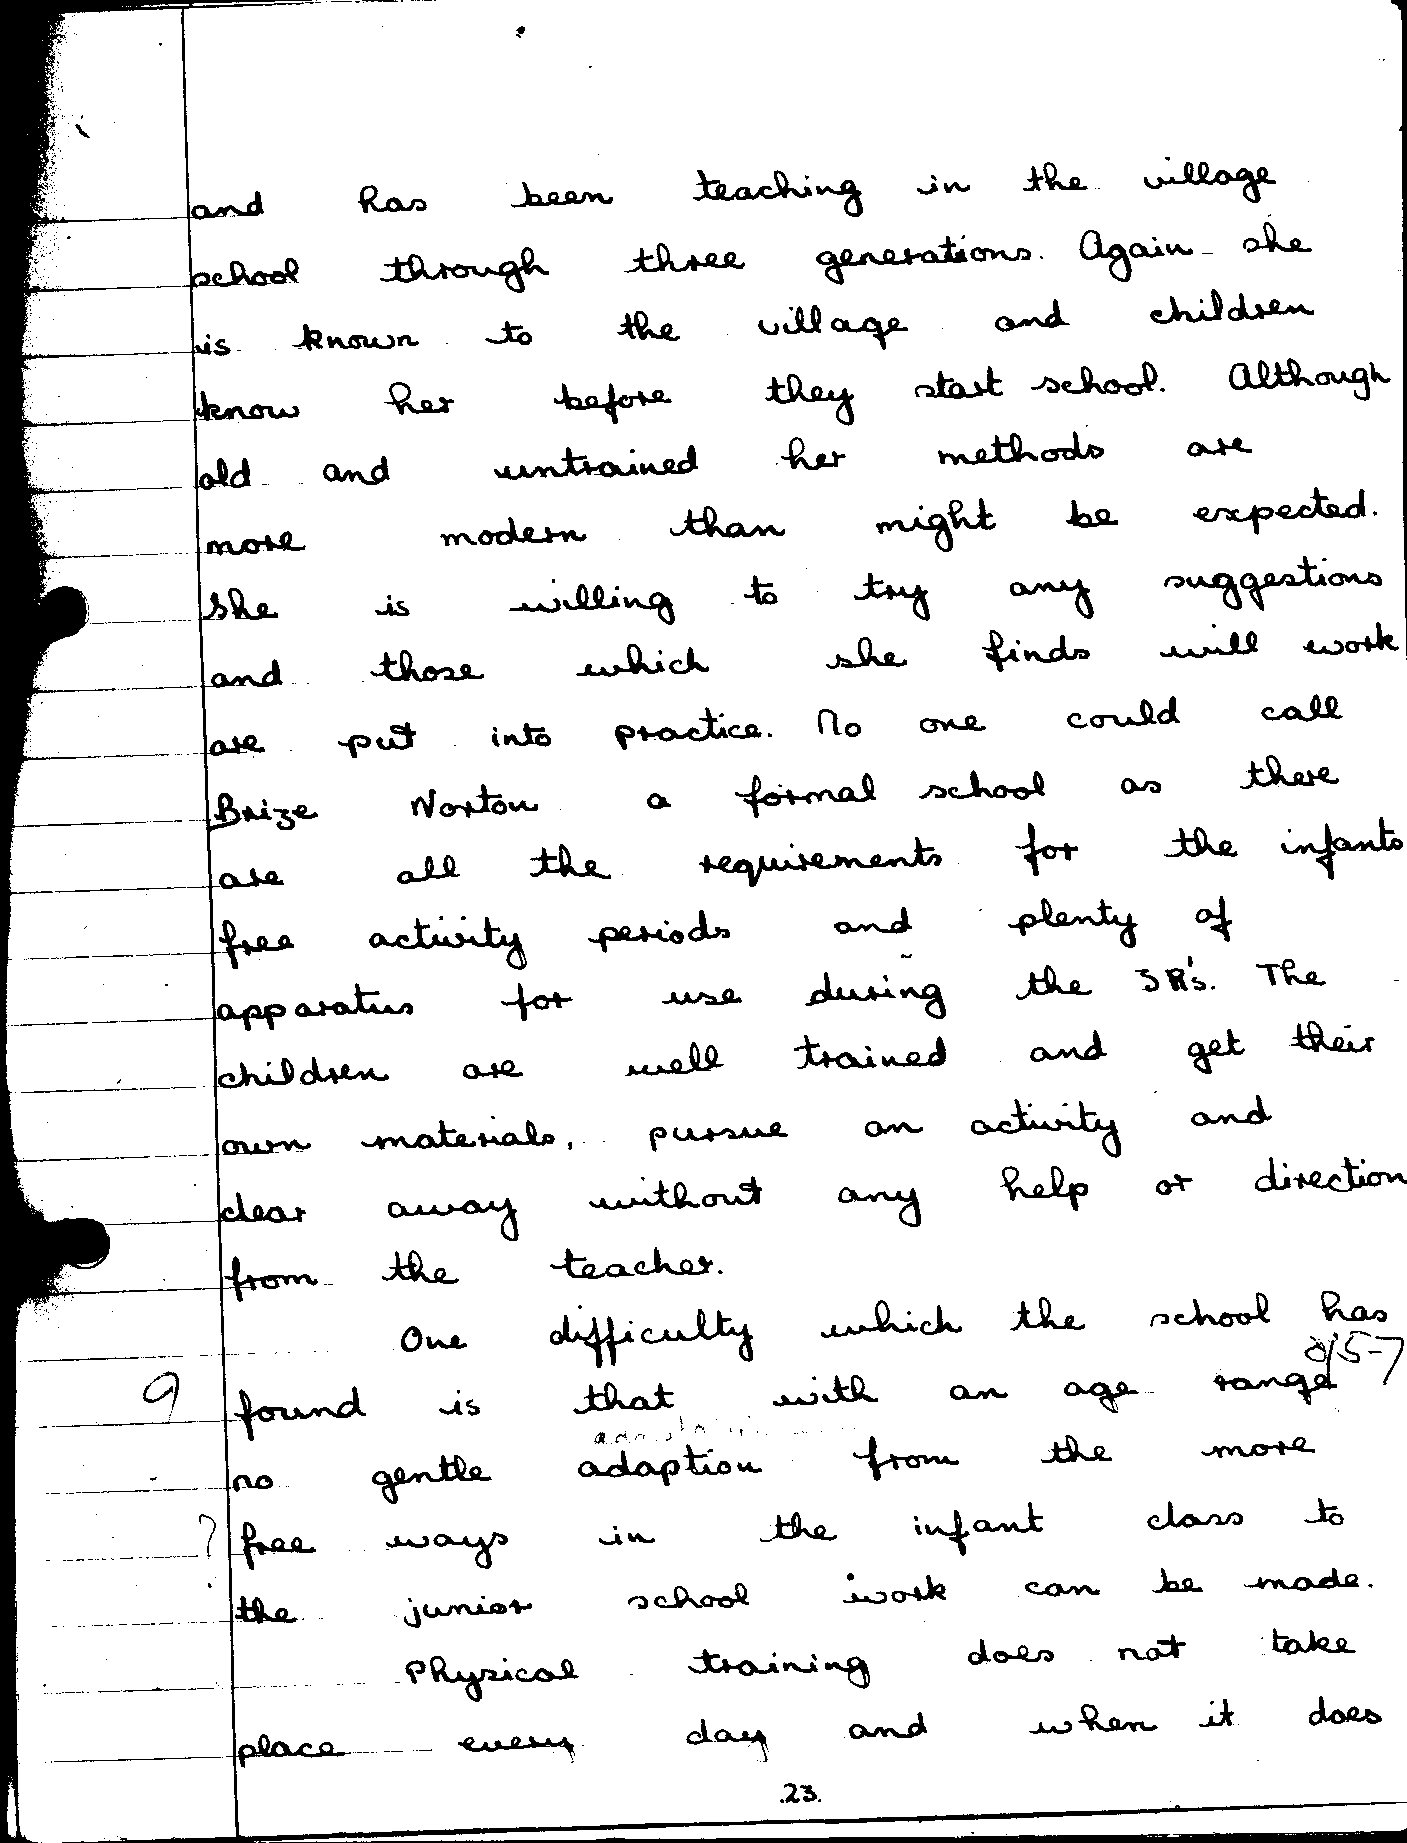 and has been teaching in the village
school through three generations. Again she
is known to the village and children
know her before they start school. Although
old and untrained her methods are
more modern than might be expected.
She is willing to try any suggestions
and those which she finds will work
are put into practice. No one could call
Brize Norton a formal school as there
are all the requirements for the infants
free activity periods and plenty of
apparatus for use during the 3R's. The
children are well trained and get their
own materials, pursue an activity and
clear away without any help or direction
from the teacher.
One difficulty which the school has
9 found is that with an age range of 5-7
no gentle adaption from the more
? free ways in the infant class to
the junior school work can be made.
Physical training does not take
place every day and when it does
.23.